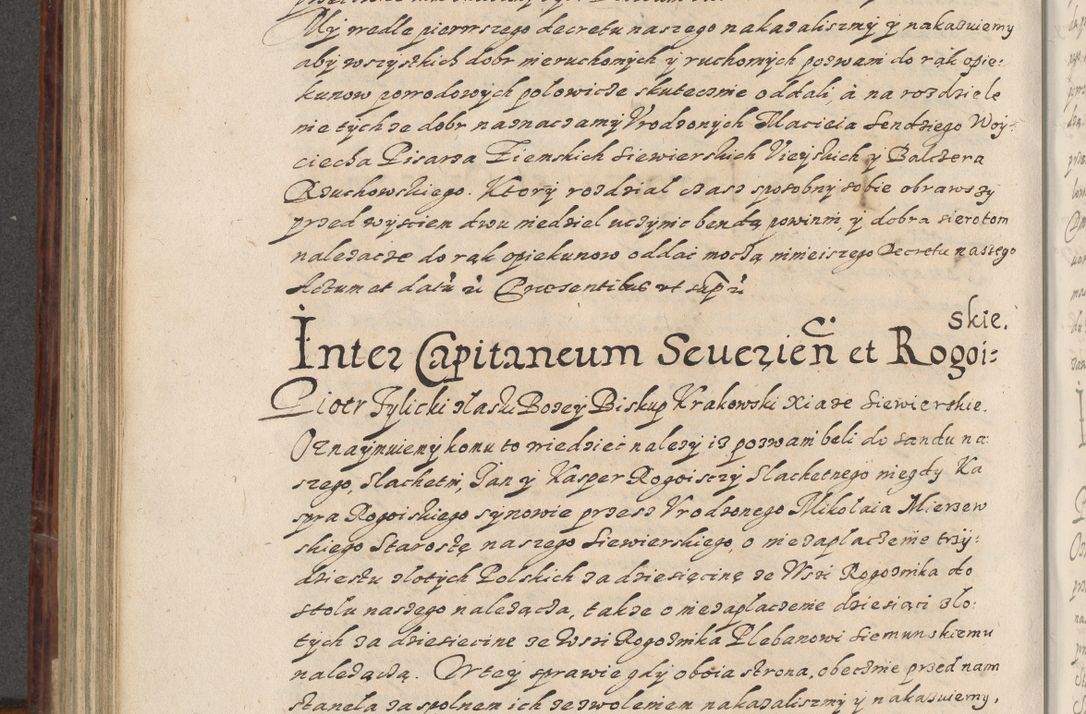 My wedle pierwszego decretu naszego nakazalismy y nakazuiemy
aby wszystkich dobr nieruchomych y ruchomych pozwani do rąk opie:
kunow powodowych polowicze skutecznie oddali, á na rozdziele
nie tych ze dobr naznaczamy Vrodzonych Macieia Sendziego Woy:
ciecha Pisarza Ziemskich Siewierskich Vieyskich y Balczera
Rzuchowskiego. Ktory rozdzial czasz sposobny sobie obrawszy
przed wyściem dwu niedziel uczynic bendą powinni, y dobra sierotom
należacze do rąk opiekunow oddać moczą ninieiszego Decretu naszego
Actum et datū ū Præsentibus vt supr̄ū
skie.
Inter Capitaneum Seuerień et Rogoi:
Piotr Tylicki z łaski Bozey Biskup Krakowski Xiaze Siewierskie.
Oznaymuiemy komu to wiedzieć nalezy iz pozwani beli do sandu na
szego, Slachetni, Jan y Kasper Rogoisczy Slachetnego niegdy Ka
spra Rogoiskiego synowie przesz Vrodzonego Mikolaia Mierzew
skiego Starostę naszego Siewierskiego, o niezaplaczenie trzy:
dziestu zlotych Polskich za dziesięcinę ze Wszi Rogoznika do
stolu naszego nalezączą, takze o niezaplaczenie dziesiąci zlo:
tych za dziesiecine ze Wszi Rogoznika Plebanowi Siemunskiemu
nalezączą. W tey sprawie gdy oboia strona, obecznie przed nam
stanela za spolnem ich zezwolemem nakazalismy y nakazuiemy,